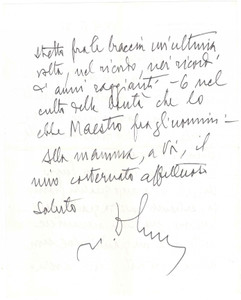 stretta fra le braccia un'ultima
volta, nel ricordo, nei ricordi
d'anni raggianti - e nel
culto della bontà che lo
ebbe Maestro fra gli uomini -
Alla mamma, a Voi, il
mio costernato affettuoso
saluto